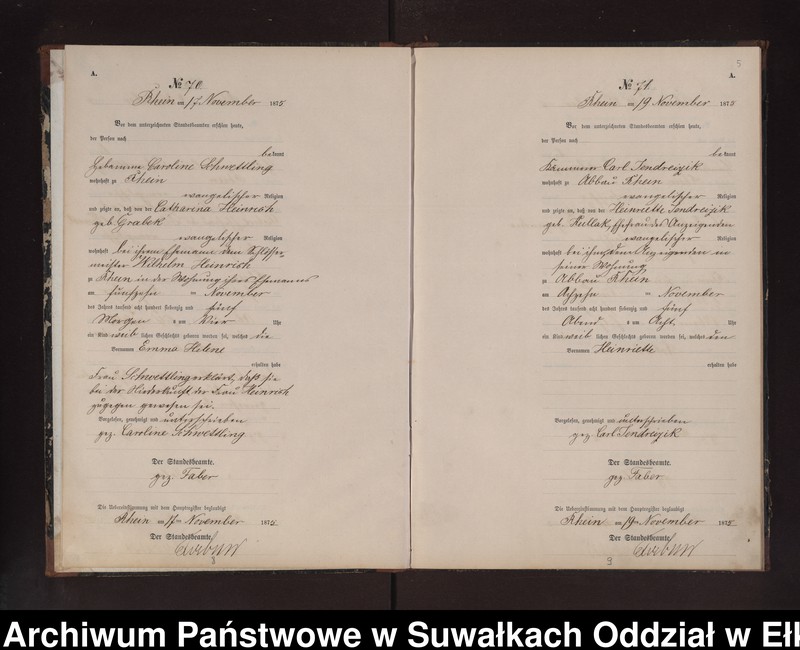 A.
№ 70
Rhein am 17 November 1875
Vor dem unterzeichneten Standesbeamten erschien heute,
der Person nach
bekannt
Hebamme Caroline Schwettling
wohnhaft zu Rhein
evangelischer Religion
und zeigte an, daß von der Catharina Heinrich
geb. Grabek
evangelischer Religion
wohnhaft bei ihrem Ehemann dem Schlosser
meister Wilhelm Heinrich
zu Rhein in der Wohnung ihres Ehemanns
am fünfzehn ten November
des Jahres tausend acht hundert siebenzig und fünf
Morgen s um Vier Uhr
ein Kind weib lichen Geschlechts geboren worden sei, welches die
Vornamen Emma Helene
erhalten habe
Frau Schwettling erklärt, daß sie
bei der Niederkunft der Frau Heinrich
zugegen gewesen sei.
Vorgelesen, genehmigt und unterschrieben
gez. Caroline Schwettling
Der Standesbeamte.
gez. Faber
Die Uebereinstimmung mit dem Hauptregister beglaubigt
Rhein am 17ten November 1875
Der Standesbeamte.
5
A.
№ 71
Rhein am 19 November 1875
Vor dem unterzeichneten Standesbeamten erschien heute,
der Person nach
bekannt
Carl Jendreizik
wohnhaft zu Abbau Rhein
evangelischer Religion
und zeigte an, daß von der Henriette Jendreizik
geb. Kullak, Ehefrau des Anzeigenden
evangelischer Religion
wohnhaft bei ihm dem Anzeigenden in
seiner Wohnung
zu Abbau Rhein
am Achzehn ten November
des Jahres tausend acht hundert siebenzig und fünf
Abend s um Acht Uhr
ein Kind weib lichen Geschlechts geboren worden sei, welches den
Vornamen Heinriette
erhalten habe
Vorgelesen, genehmigt und unterschrieben
gez. Carl Jendreizik
Der Standesbeamte.
gez. Faber
Die Uebereinstimmung mit dem Hauptregister beglaubigt
Rhein am 19ten November 1875
Der Standesbeamte.
Archiwum Państwowe w Suwałkach Oddział w Ełk